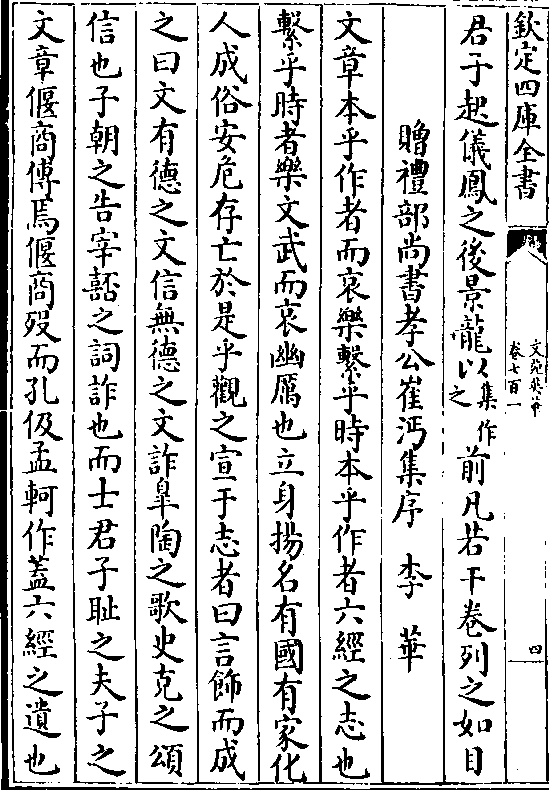 欽定四庫全書
文苑英華
卷七百一
四
君子起儀鳳之後景龍以集作之前凡若干卷列之如目
贈禮部尚書孝公崔沔集序 李華
文章本乎作者而哀樂繫乎時本乎作者六經之志也
繫乎時者樂文武而哀幽厲也立身揚名有國有家化
人成俗安危存亡於是乎觀之宣于志者曰言飾而成
之曰文有德之文信無德之文詐臯陶之歌史克之頌
信也子朝之告宰嚭之詞詐也而士君子耻之夫子之
文章偃商傅焉偃商殁而孔伋孟軻作蓋六經之遺也